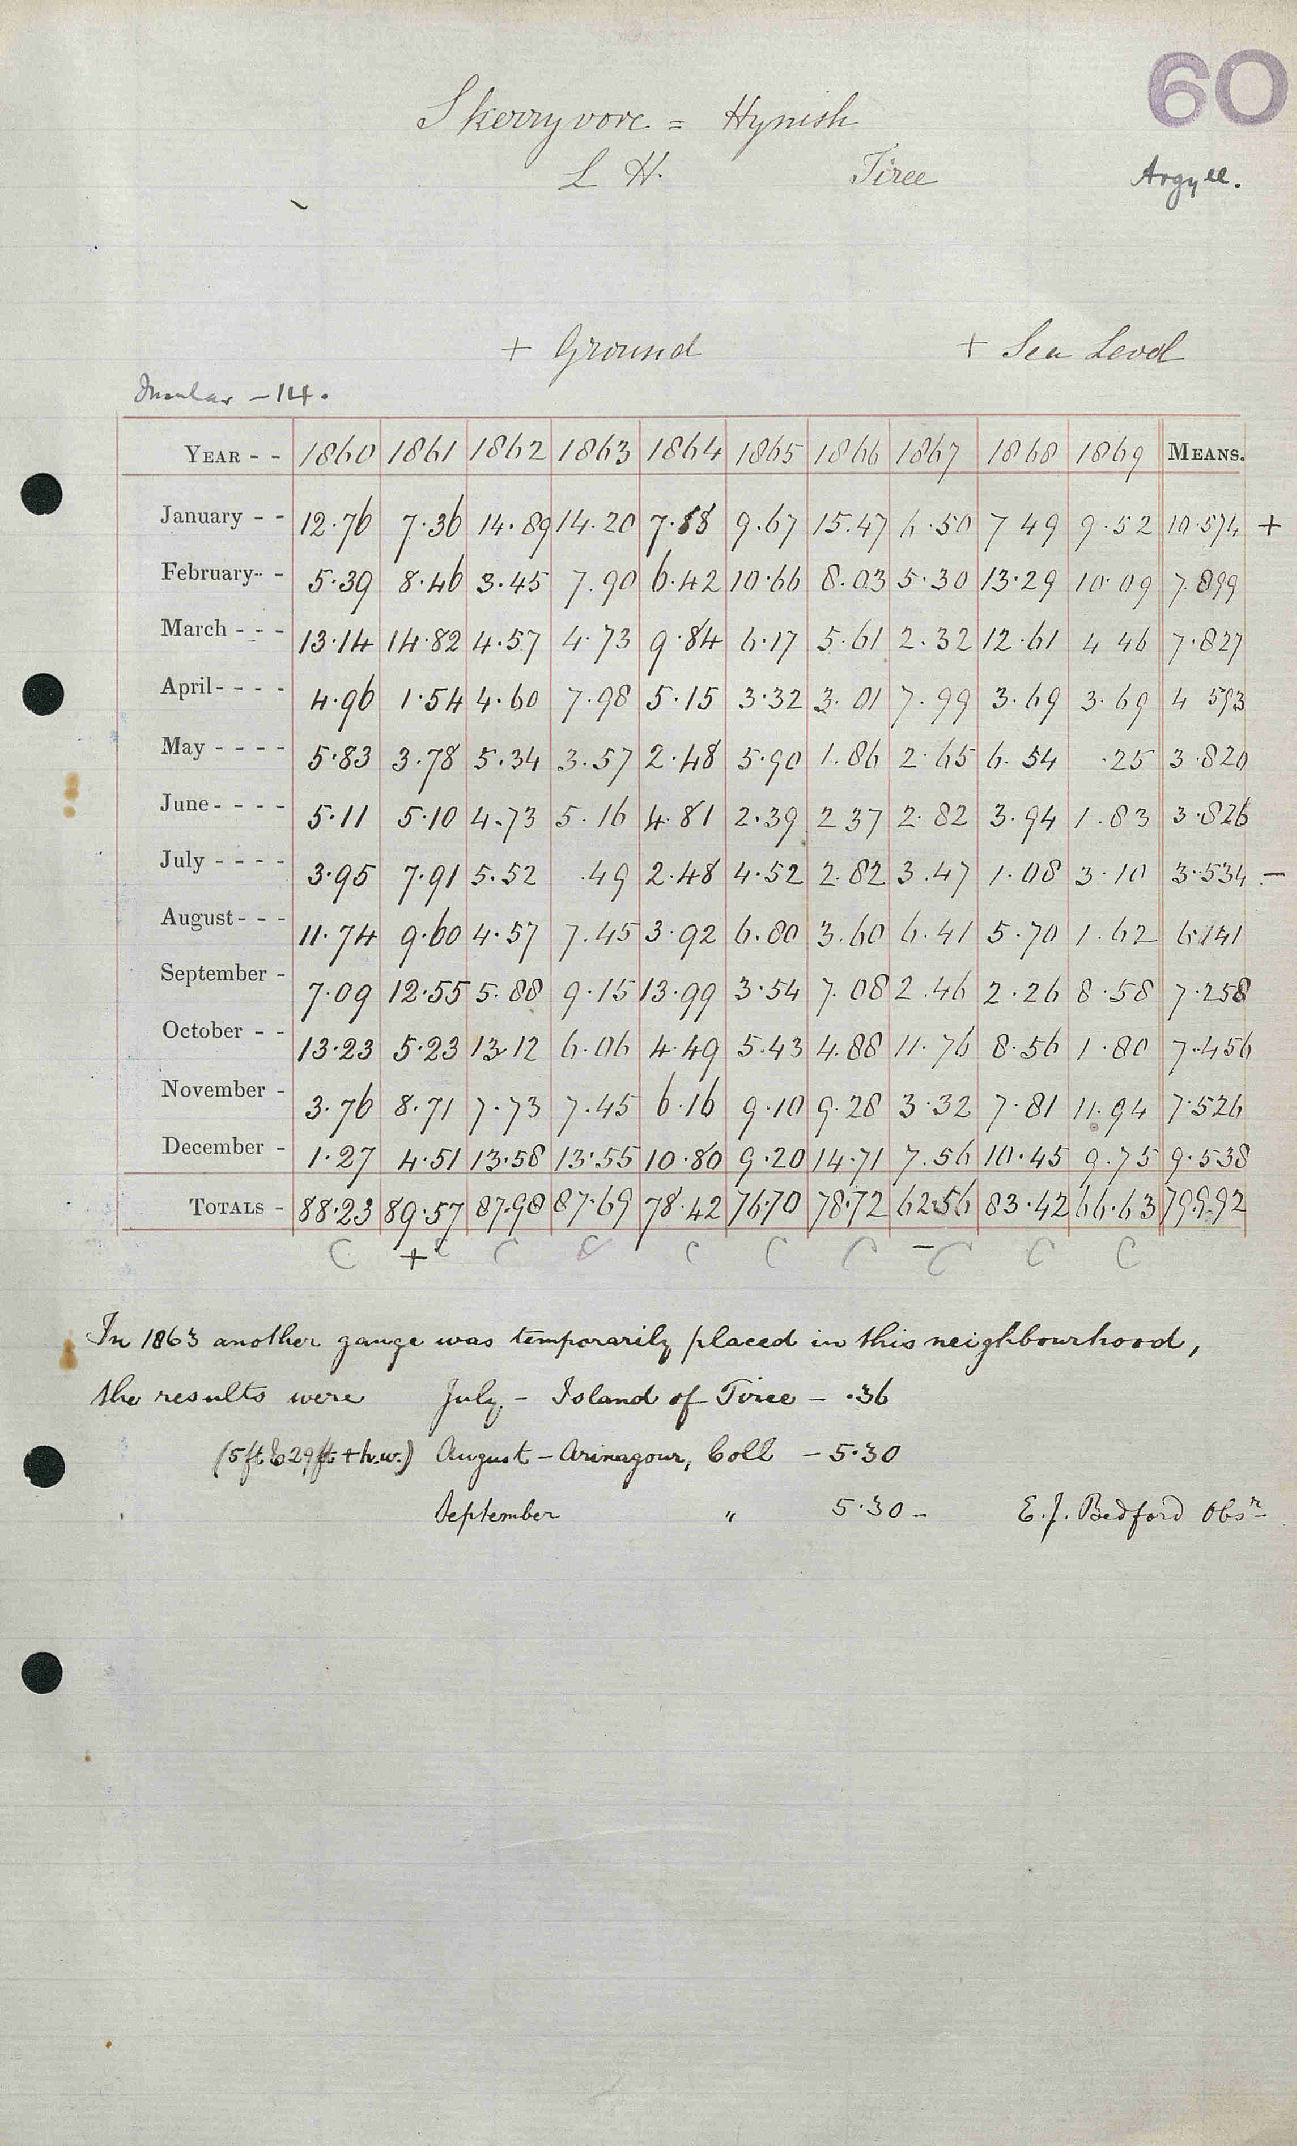 60
Skerryvore = Hynish
L H. Tiree Argyll.
+ Ground + Sea Level
Insular - 14.
YEAR - - 1860 1861 1862 1863 1864 1865 1866 1867 1868 1869 MEANS.
January - - 12.76 7.36 14.89 14.20 7.88 9.67 15.47 6.50 7 49 9.52 10.574 +
February - - 5.39 8.46 3.45 7.90 6.42 10.66 8.03 5.30 13.29 10.09 7.899
March - - - 13.14 14.82 4.57 4.73 9.84 6.17 5.61 2.32 12.61 4 46 7.827
April - - - - 4.96 1.54 4.60 7.98 5.15 3.32 3.01 7.99 3.69 3.69 4 593
May - - - - 5.83 3.78 5.34 3.57 2.48 5.90 1.86 2.65 6.54 .25 3.820
June - - - - 5.11 5.10 4.73 5.16 4.81 2.39 2 37 2.82 3.94 1.83 3.826
July - - - - 3.95 7.91 5.52 .49 2.48 4.52 2.82 3.47 1.08 3.10 3.534 -
August - - - 11.74 9.60 4.57 7.45 3.92 6.80 3.60 6.41 5.70 1.62 6.141
September - 7.09 12.55 5.88 9.15 13.99 3.54 7.08 2.46 2.26 8.58 7.258
October - - 13.23 5.23 13.12 6.06 4.49 5.43 4.88 11.76 8.56 1.80 7.456
November - 3.76 8.71 7.73 7.45 6.16 9.10 9.28 3.32 7.81 11.94 7.526
December - 1.27 4.51 13.58 13.55 10.80 9.20 14.71 7.56 10.45 9.75 9.538
TOTALS - 88.23 89.57 87.98 87.69 78.42 76.70 78.72 62.56 83.42 66.63 79.992
C + C C C C C C - C C C
In 1863 another gauge was temporarily placed in this neighbourhood,
the results were July, - Island of Tiree - .36
(5ft & 29ft + h.w.) August - Arinagour, Coll - 5.30
September " 5.30 - E.J. Bedford Obsr